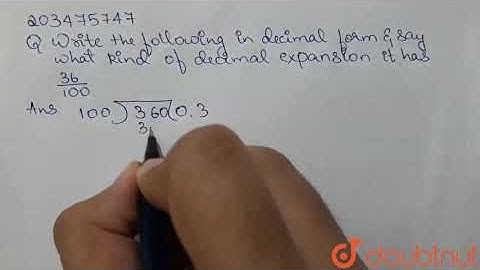 203475747
Q Write the following in decimal form & say
what kind of decimal expansion it has
36
100
Ans 100)360(0.3
3
doubtnut